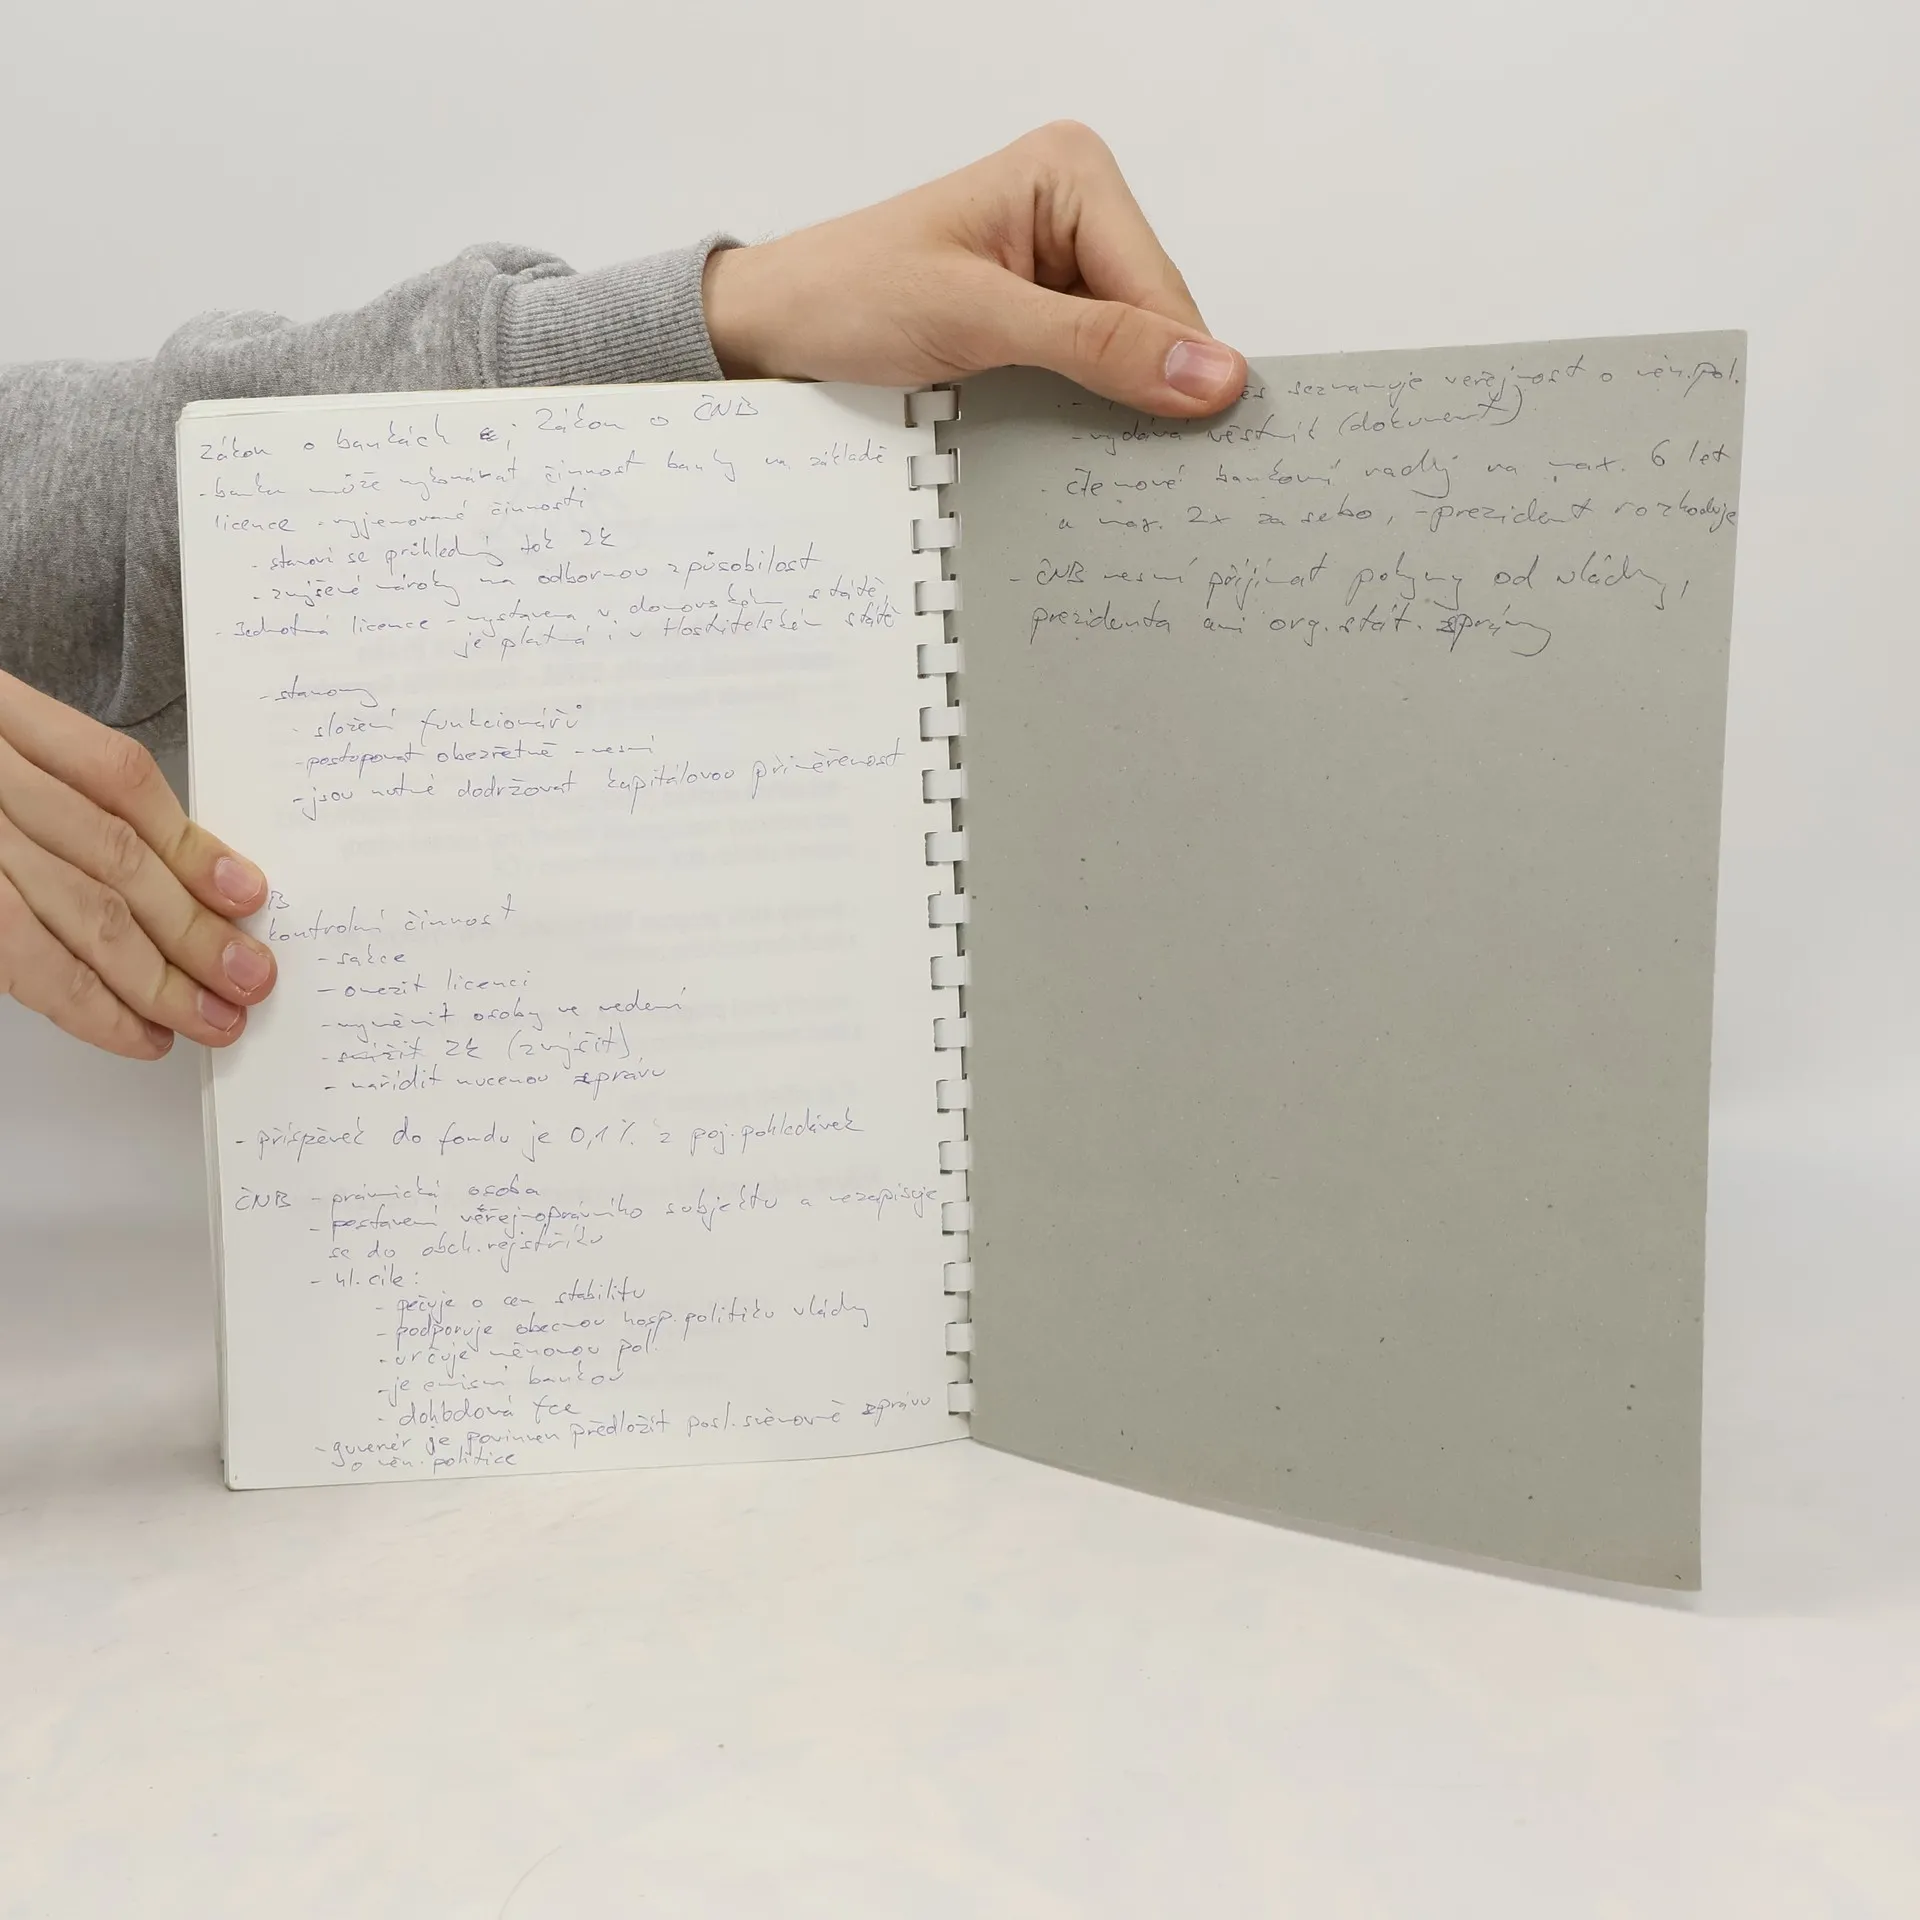 Zákon o bankách ; Zákon o ČNB
- banka může vykonávat činnost banky na základě
licence - vyjmenované činnosti
- stanoví se průhledný tok ZK
- zvýšené nároky na odbornou způsobilost
- Jednotná licence - vystavena v domovském státě,
je platná i v Hostitelském státě
- stanovy
- složení funkcionářů
- postupovat obezřetně - nesmí
- jsou nutné dodržovat kapitálovou přiměřenost
B
kontrolní činnost
- sakce
- omezit licenci
- vyměnit osoby ve vedení
- snížit ZK (zvýšit)
- nařídit nucenou správu
- příspěvek do fondu je 0,1 % z poj. pohledávek
ČNB - právnická osoba
- postavení veřejnoprávního subjektu a nezapisuje
se do obch. rejstříku
- hl. cíle:
- pečuje o cen stabilitu
- podporuje obecnou hosp. politiku vlády
- určuje měnovou pol.
- je emisní bankou
- dohledová fce
- guvenér je povinnen předložit posl. sněmovně zprávu
o měn. politice
seznamuje veřejnost o měn. pol.
- vydává věstník (dokument)
- čle nové bankovní rady na max. 6 let
a max. 2x za sebo, - prezident rozhoduje
- ČNB nesmí přijímat pokyny od vlády,
prezidenta ani org. stát. správy